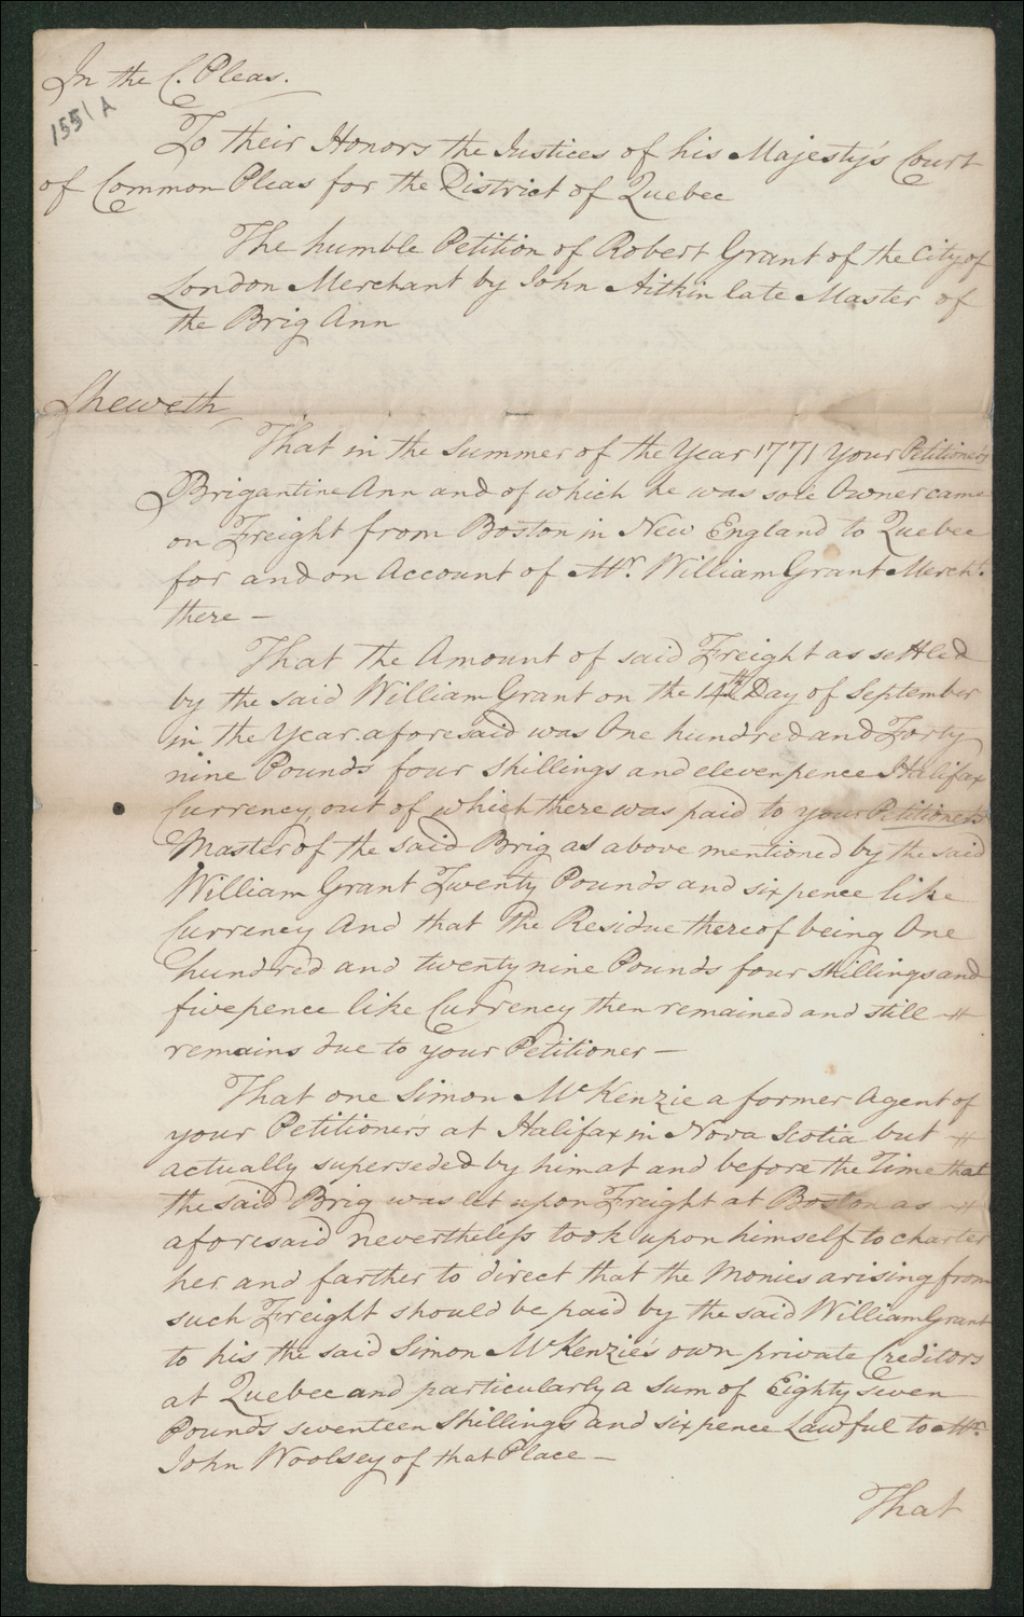 In the C. Pleas.
1551 A
To their Honors the Justices of his Majesty's Court
of Common Pleas for the District of Quebec
The humble Petition of Robert Grant of the City of
London Merchant by John Aitkin late Master of
the Brig Ann
Sheweth
That in the Summer of the Year 1771 your Petitioner's
Brigantine Ann and of which he was sole Owner came
on Freight from Boston in New England to Quebec
for and on Account of Mr. William Grant Mercht.
there —
That the Amount of said Freight as settled
by the said William Grant on the 14th Day of September
in the Year aforesaid was One hundred and Forty
nine Pounds four Shillings and eleven pence Halifax
Currency, out of which there was paid to your Petitioner's
Master of the said Brig as above mentioned by the said
William Grant Twenty Pounds and six pence like
Currency And that the Residue thereof being One
hundred and twenty nine Pounds four shillings and
five pence like Currency then remained and still
remains due to your Petitioner —
That one Simon McKenzie a former Agent of
your Petitioner's at Halifax in Nova Scotia but
actually superseded by him at and before the Time that
the said Brig was let upon Freight at Boston as
aforesaid nevertheless took upon himself to charter
her and farther to direct that the Monies arising from
such Freight should be paid by the said William Grant
to his the said Simon McKenzie's own private Creditors
at Quebec and particularly a Sum of Eighty seven
Pounds seventeen Shillings and six pence Lawful to Mr.
John Woolsey of that Place —
That